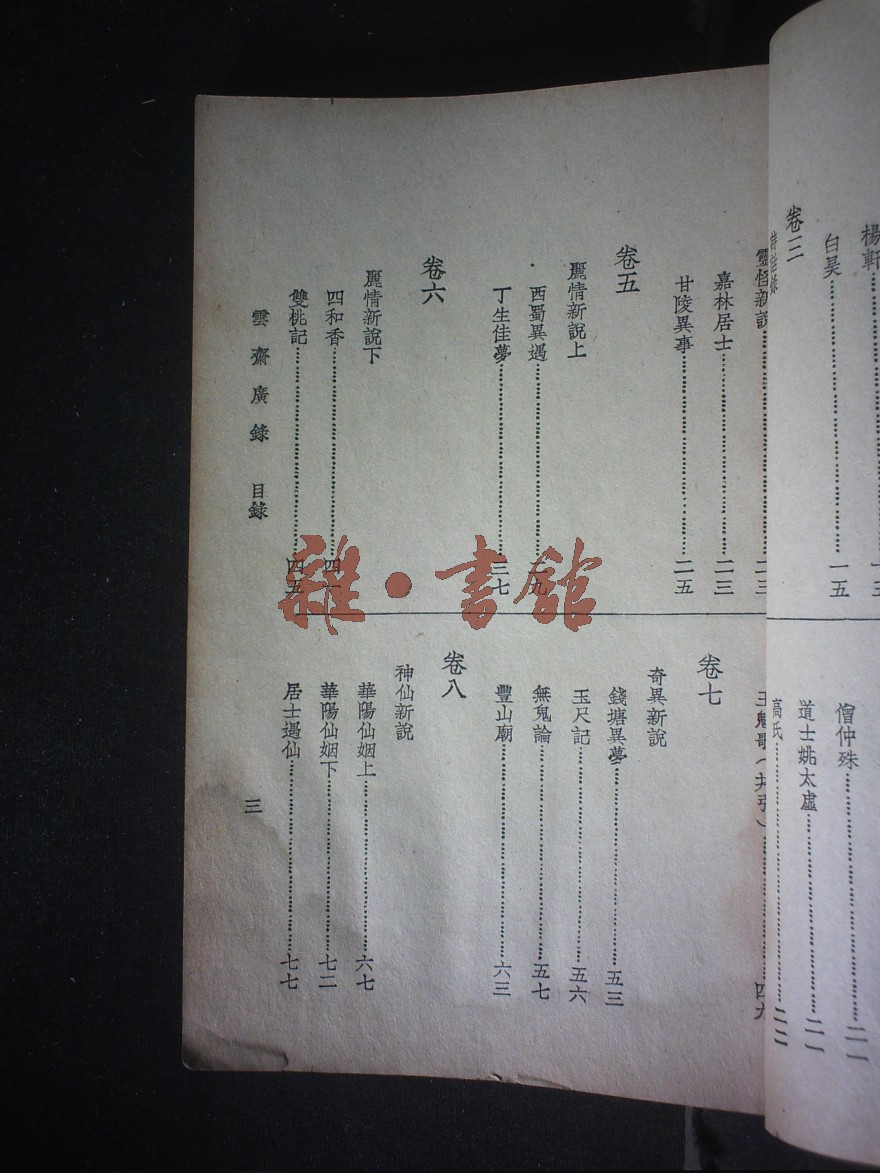 楊軒
白昊……一五
卷三
僧仲殊……二一
道士姚太虛……二一
高氏……二二
靈怪新說
嘉林居士……二三
甘陵異事……二五
卷五
麗情新說上
西蜀異遇……二九
丁生佳夢……三七
卷六
麗情新說下
四和香……四一
雙桃記……四五
王魁歌（并引）……四九
卷七
奇異新說
錢塘異夢……五三
玉尺記……五六
無鬼論……五七
豐山廟……六三
卷八
神仙新說
華陽仙姻上……六七
華陽仙姻下……七二
居士遇仙……七七
雲齋廣錄 目錄
三
雜·書館